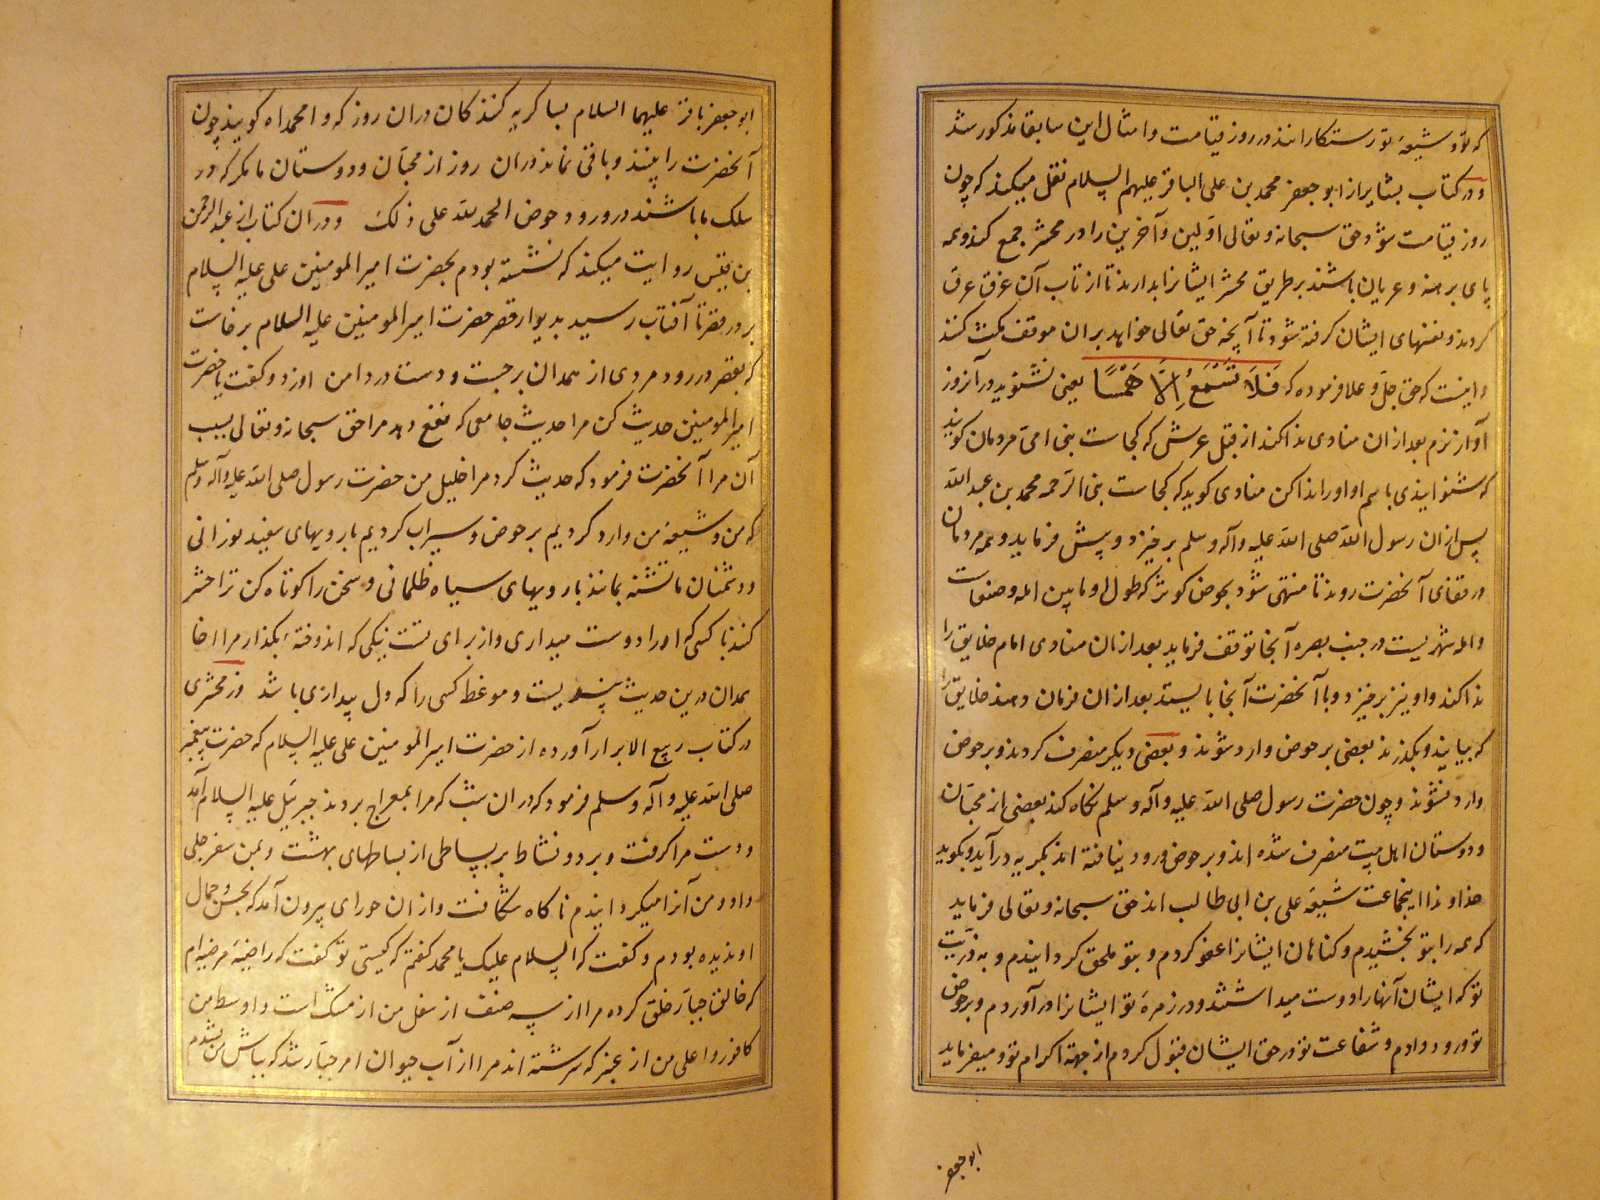 که تو و شیعهٔ تو رستکارانند در روز قیامت و امثال این سابقا مذکور شد
و در کتاب بشایر از ابو جعفر محمد بن علی الباقر علیهم السلام نقل میکند که چون
روز قیامت شود حق سبحانه و تعالی اولین و آخرین را در محشر جمع کند و همه
پای برهنه و عریان باشند بر طریق محشر ایشانرا بدارند تا از تاب آن عرق عرق
کردند و نفسهای ایشان کرفته شود تا آنچه حق تعالی خواهد بران موقف مکث کنند
و اینست که حق جل و علا فرموده که فَلَا تَسْمَعُ اِلَّا هَمْسًا یعنی نشنوید در آنروز
آواز نرم بعد ازان منادی ندا کند از قبل عرش که کجاست نبی امی مردمان کویند
که شنوانیدی باسم او اورا ندا کن منادی کوید که کجاست نبی الرحمه محمد بن عبدالله
پس ازان رسول الله صلی الله علیه و آله و سلم برخیزد و پیش فرماید و همه مردمان
در قفای آنحضرت روند تا منتهی شود بحوض کوثر که طول او مابین ابله و صنعاست
و ابله شهریست در جنب بصره آنجا توقف فرماید بعد ازان منادی امام خلایق را
ندا کند و او نیز برخیزد و با آنحضرت آنجا بایستد بعد ازان فرمان دهند خلایق را
که بیایند و بکذرند بعضی بر حوض وارد شوند و بعضی دیکر منصرف کردند و بر حوض
وارد نشوند و چون حضرت رسول صلی الله علیه و آله و سلم نکاه کند بعضی از محبان
و دوستان اهل بیت منصرف شده اند و بر حوض ورود نیافته اند بکریه در آید و بکوید
خداوندا اینجماعت شیعهٔ علی بن ابی طالب اند حق سبحانه و تعالی فرماید
که همه را بتو بخشیدم و کناهان ایشانرا عفو کردم و بتو ملحق کردانیدم و به ذریت
تو که ایشان آنها را دوست میداشتند و در زمرهٔ تو ایشانرا در آوردم و بر حوض
تو ورود دادم و شفاعت تو در حق ایشان قبول کردم از جهة اکرام تو و میفرماید
ابو جعفر
ابو جعفر باقر علیهما السلام بسا کریه کنندکان دران روز که وا محمداه کویند چون
آنحضرت را بینند و باقی نماند دران روز از محبان و دوستان ما مکر که در
سلک ما باشند در ورود حوض الحمد لله علی ذلک و دران کتاب از عبدالرحمن
بن قیس روایت میکند که نشسته بودم بحضرت امیرالمومنین علی علیه السلام
بر در قصر تا آفتاب رسید بدیوار قصر حضرت امیرالمومنین علیه السلام برخاست
که بقصر در رود مردی از همدان برجست و دست در دامن او زد و کفت یا حضرت
امیرالمومنین حدیث کن مرا حدیث جامعی که نفع دهد مرا حق سبحانه و تعالی بسبب
آن مرا آنحضرت فرمود که حدیث کرد مرا خلیل من حضرت رسول صلی الله علیه و آله و سلم
که من و شیعهٔ من وارد کردیم بر حوض و سیراب کردیم با رویهای سفید نورانی
و دشمنان ما تشنه بمانند با رویهای سیاه ظلمانی و سخن را کوتاه کن ترا حشر
کنند با کسی که اورا دوست میداری و از برای تست نیکی که اندوختهٔ بکذار مرا اخا
همدان درین حدیث پندیست و موعظ کسی را که دل بیداری باشد و زمخشری
در کتاب ربیع الابرار آورده از حضرت امیرالمومنین علی علیه السلام که حضرت پیغمبر
صلی الله علیه و آله و سلم فرمود که دران شب که مرا بمعراج بردند جبرئیل علیه السلام آمد
و دست مرا کرفت و برد و نشاط بر بساطی از بساطهای بهشت و بمن سفرجلی
داد و من آنرا میکردانیدم ناکاه شکافت و ازان حورای بیرون آمد که بحسن و جمال
او ندیده بودم و کفت که السلام علیک یا محمد کفتم که کیستی تو کفت که راضیهٔ مرضیه ام
که خالق جبار خلق کرده مرا از سه صنف اسفل من از مشک است و اوسط من
کافور و اعلی من از عنبر که سرشته اند مرا از آب حیوان امر جبار شد که بباش من بشدم